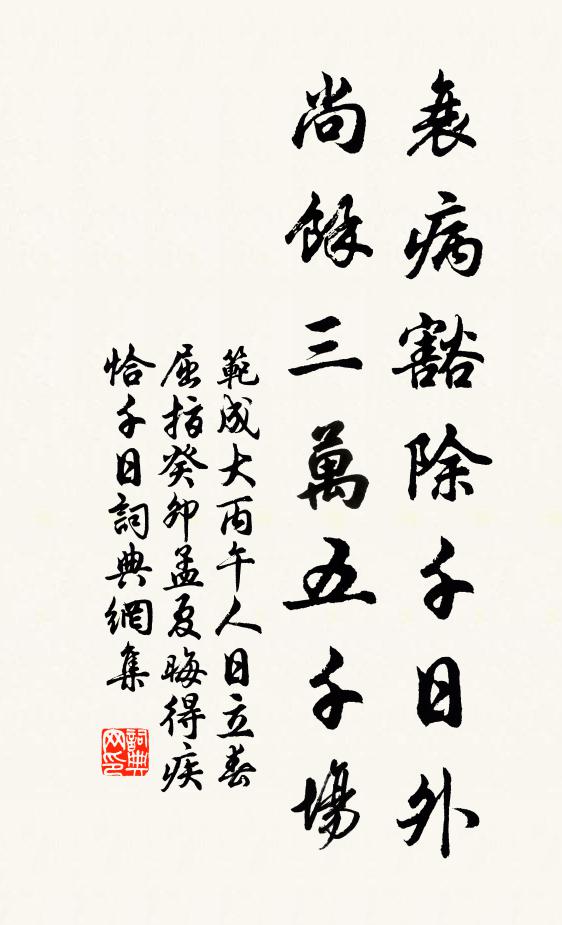 衰病豁除千日外
尚餘三萬五千場
範成大丙午人日立春
屈指癸卯孟夏晦得疾
恰千日詞典網集
詞典网印